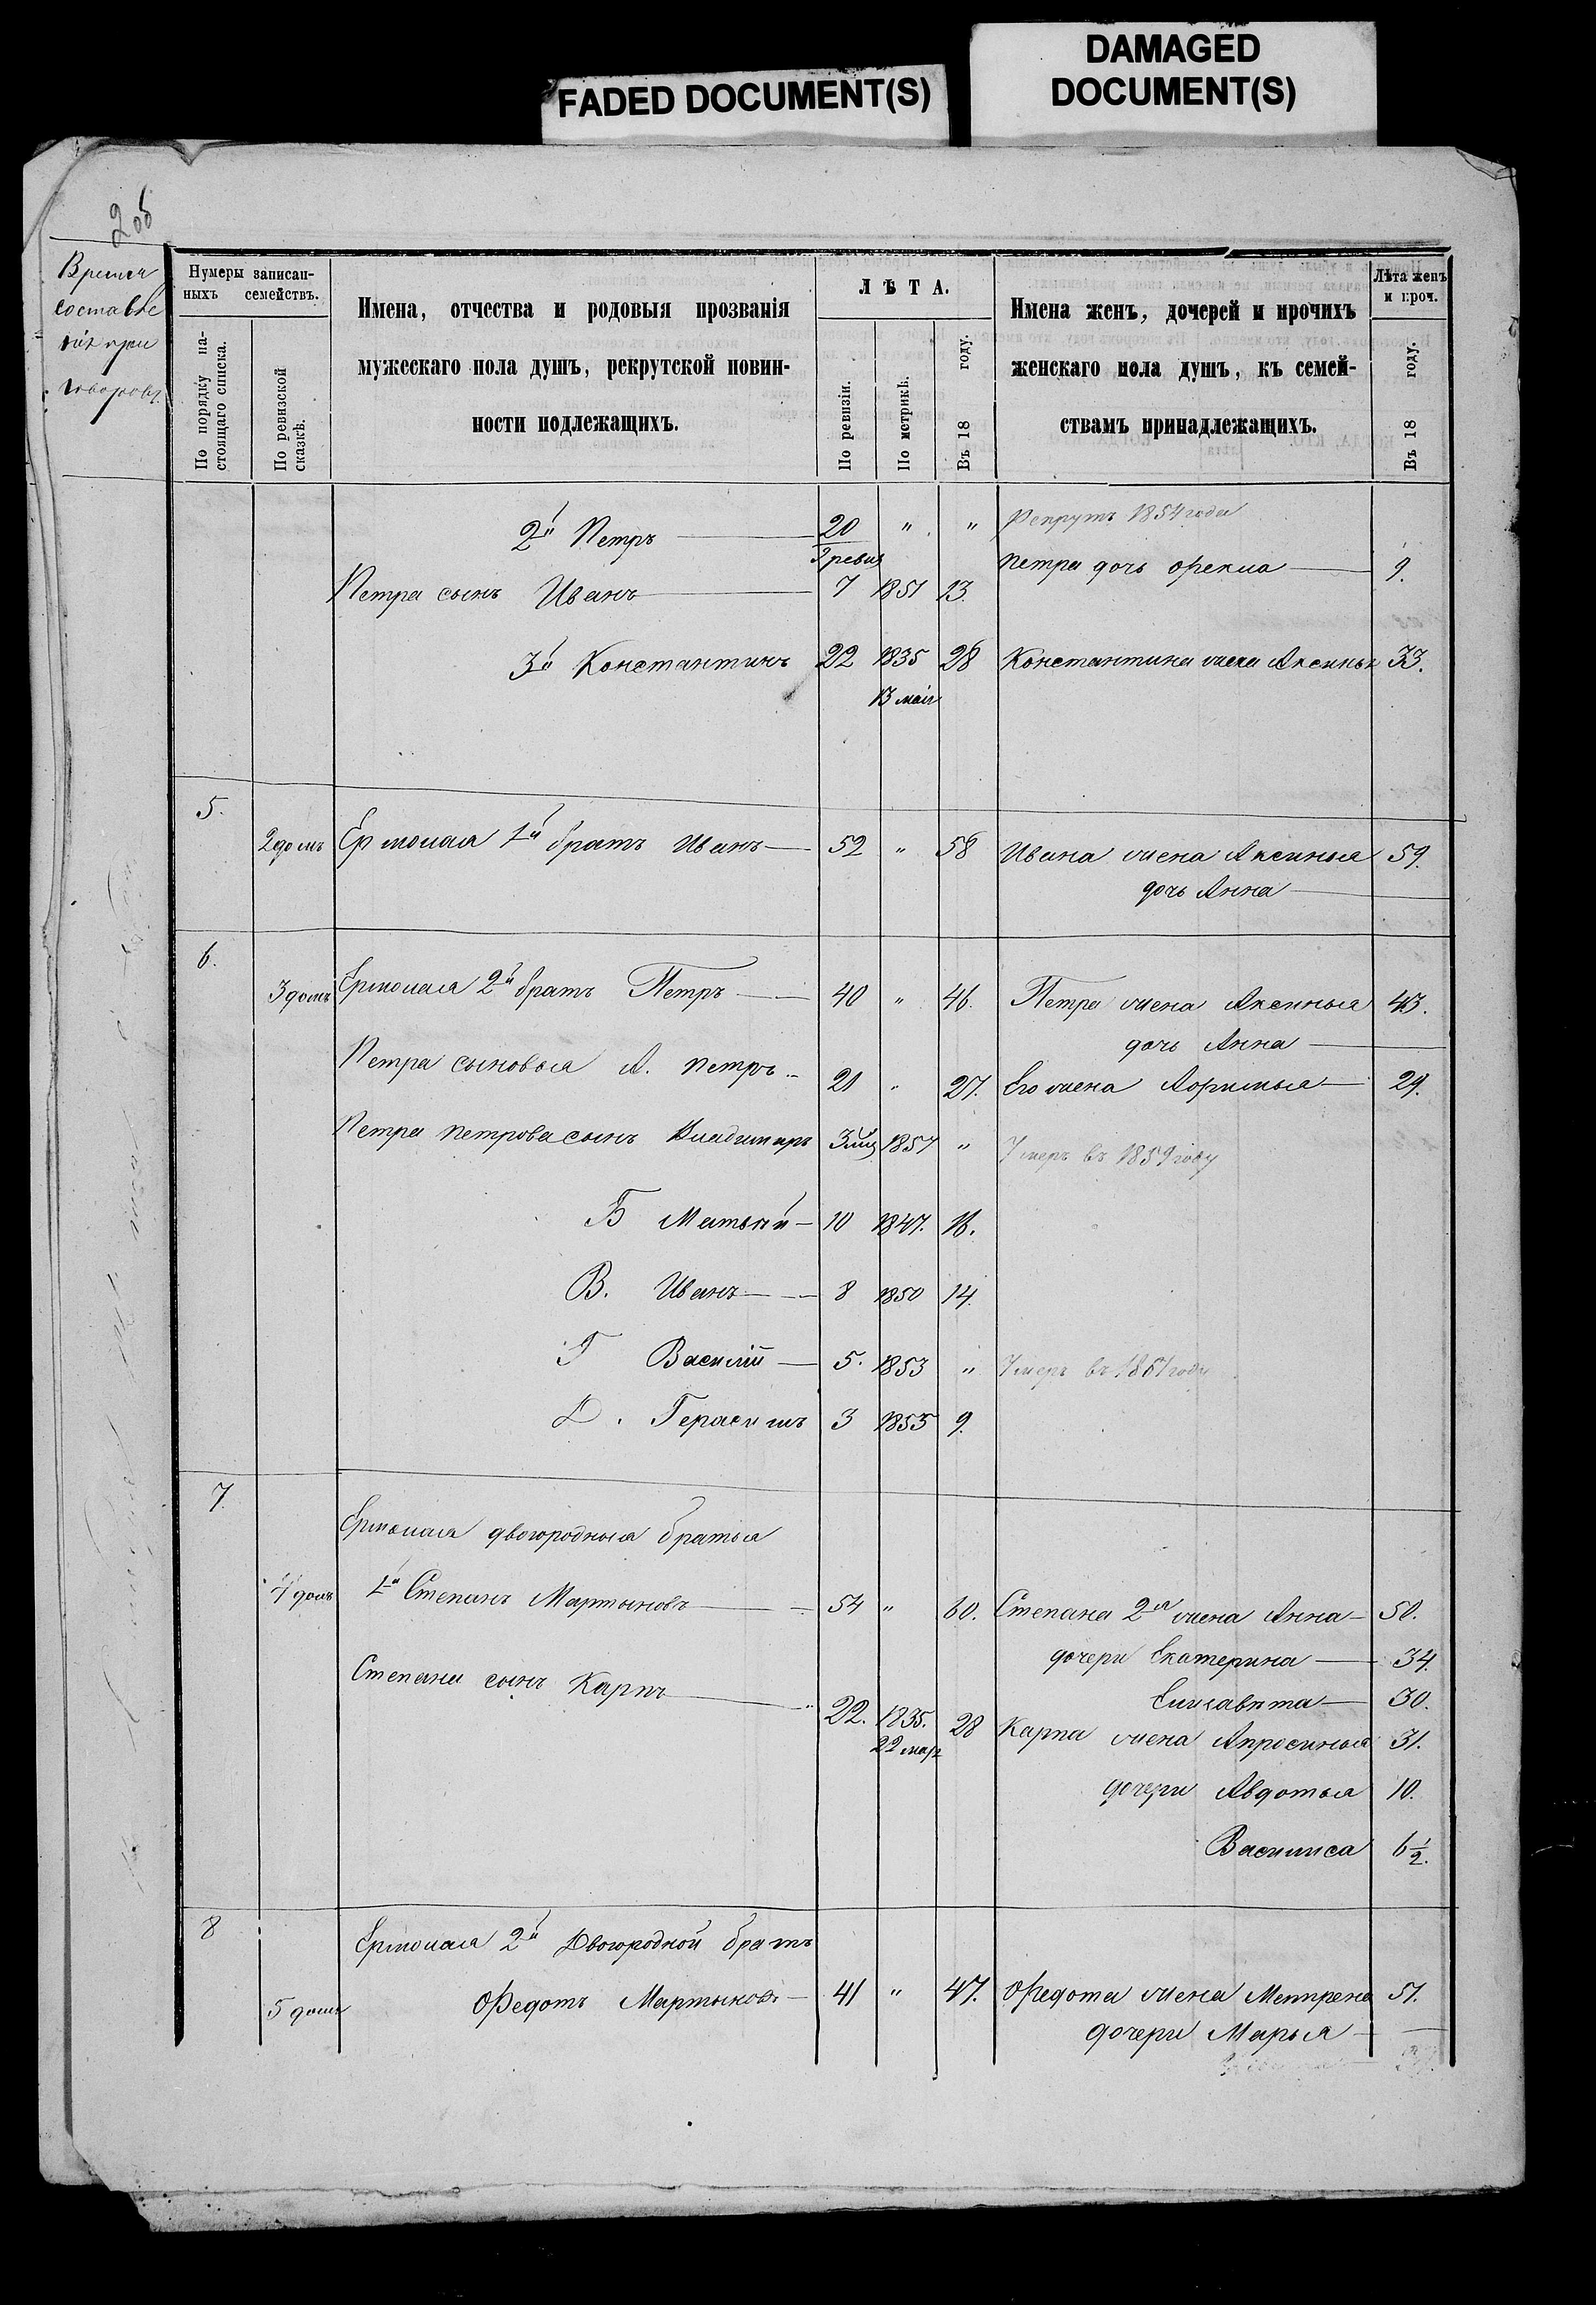 FADED DOCUMENT(S)
DAMAGED
DOCUMENT(S)
2об
Время
составле
нія при
говоровъ.
Нумеры записан-
ныхъ семействъ.
По порядку на-
стоящаго списка.
По ревизской
сказкѣ.
Имена, отчества и родовыя прозванія
мужескаго пола душъ, рекрутской повин-
ности подлежащихъ.
ЛѢТА.
По ревизіи.
По метрикѣ.
Въ 18 году.
Имена женъ, дочерей и прочихъ
женскаго пола душъ, къ семей-
ствамъ принадлежащихъ.
Лѣта женъ
и проч.
Въ 18 году.
2й Петръ 20 " " Рекрутъ 1854 года
Петра дочь 9.
Петра сынъ Иванъ 7 1851 13.
3й Константинъ 22 1835 28 Константина жена Аксинья 33.
13 маія
5.
2 домъ Ермолая 1й братъ Иванъ 52 " 58 Ивана жена Аксинья 59.
дочь Анна —
6.
3 домъ Ермолая 2й братъ Петръ 40 " 46. Петра жена Аксинья 43.
дочь Анна —
Петра сыновья А. Петръ 21 " 27. Его жена 29.
Петра Петрова сынъ Владимиръ 1857 " Умеръ въ 1859 году
Б Матвѣй 10 1847. 16.
В. Иванъ 8 1850 14.
Г Василій 5. 1853 " Умеръ въ 1861 году
Д. Герасимъ 3 1855 9.
7.
Ермолая двоюродныя братья
4 домъ 1й Степанъ Мартыновъ 54 " 60. Степана 2я жена Анна 50.
дочери Екатерина 34.
Степана сынъ Карпъ 22. 1835. 28
22 мар
Елисавета 30.
Карпа жена Апросинья 31.
дочери Авдотья 10.
Василиса 6 1/2.
8
Ермолая 2й Двоюродной братъ
5 домъ Ѳедотъ Мартыновъ 41 " 47. Ѳедота жена Матрена 51.
дочери Марья —